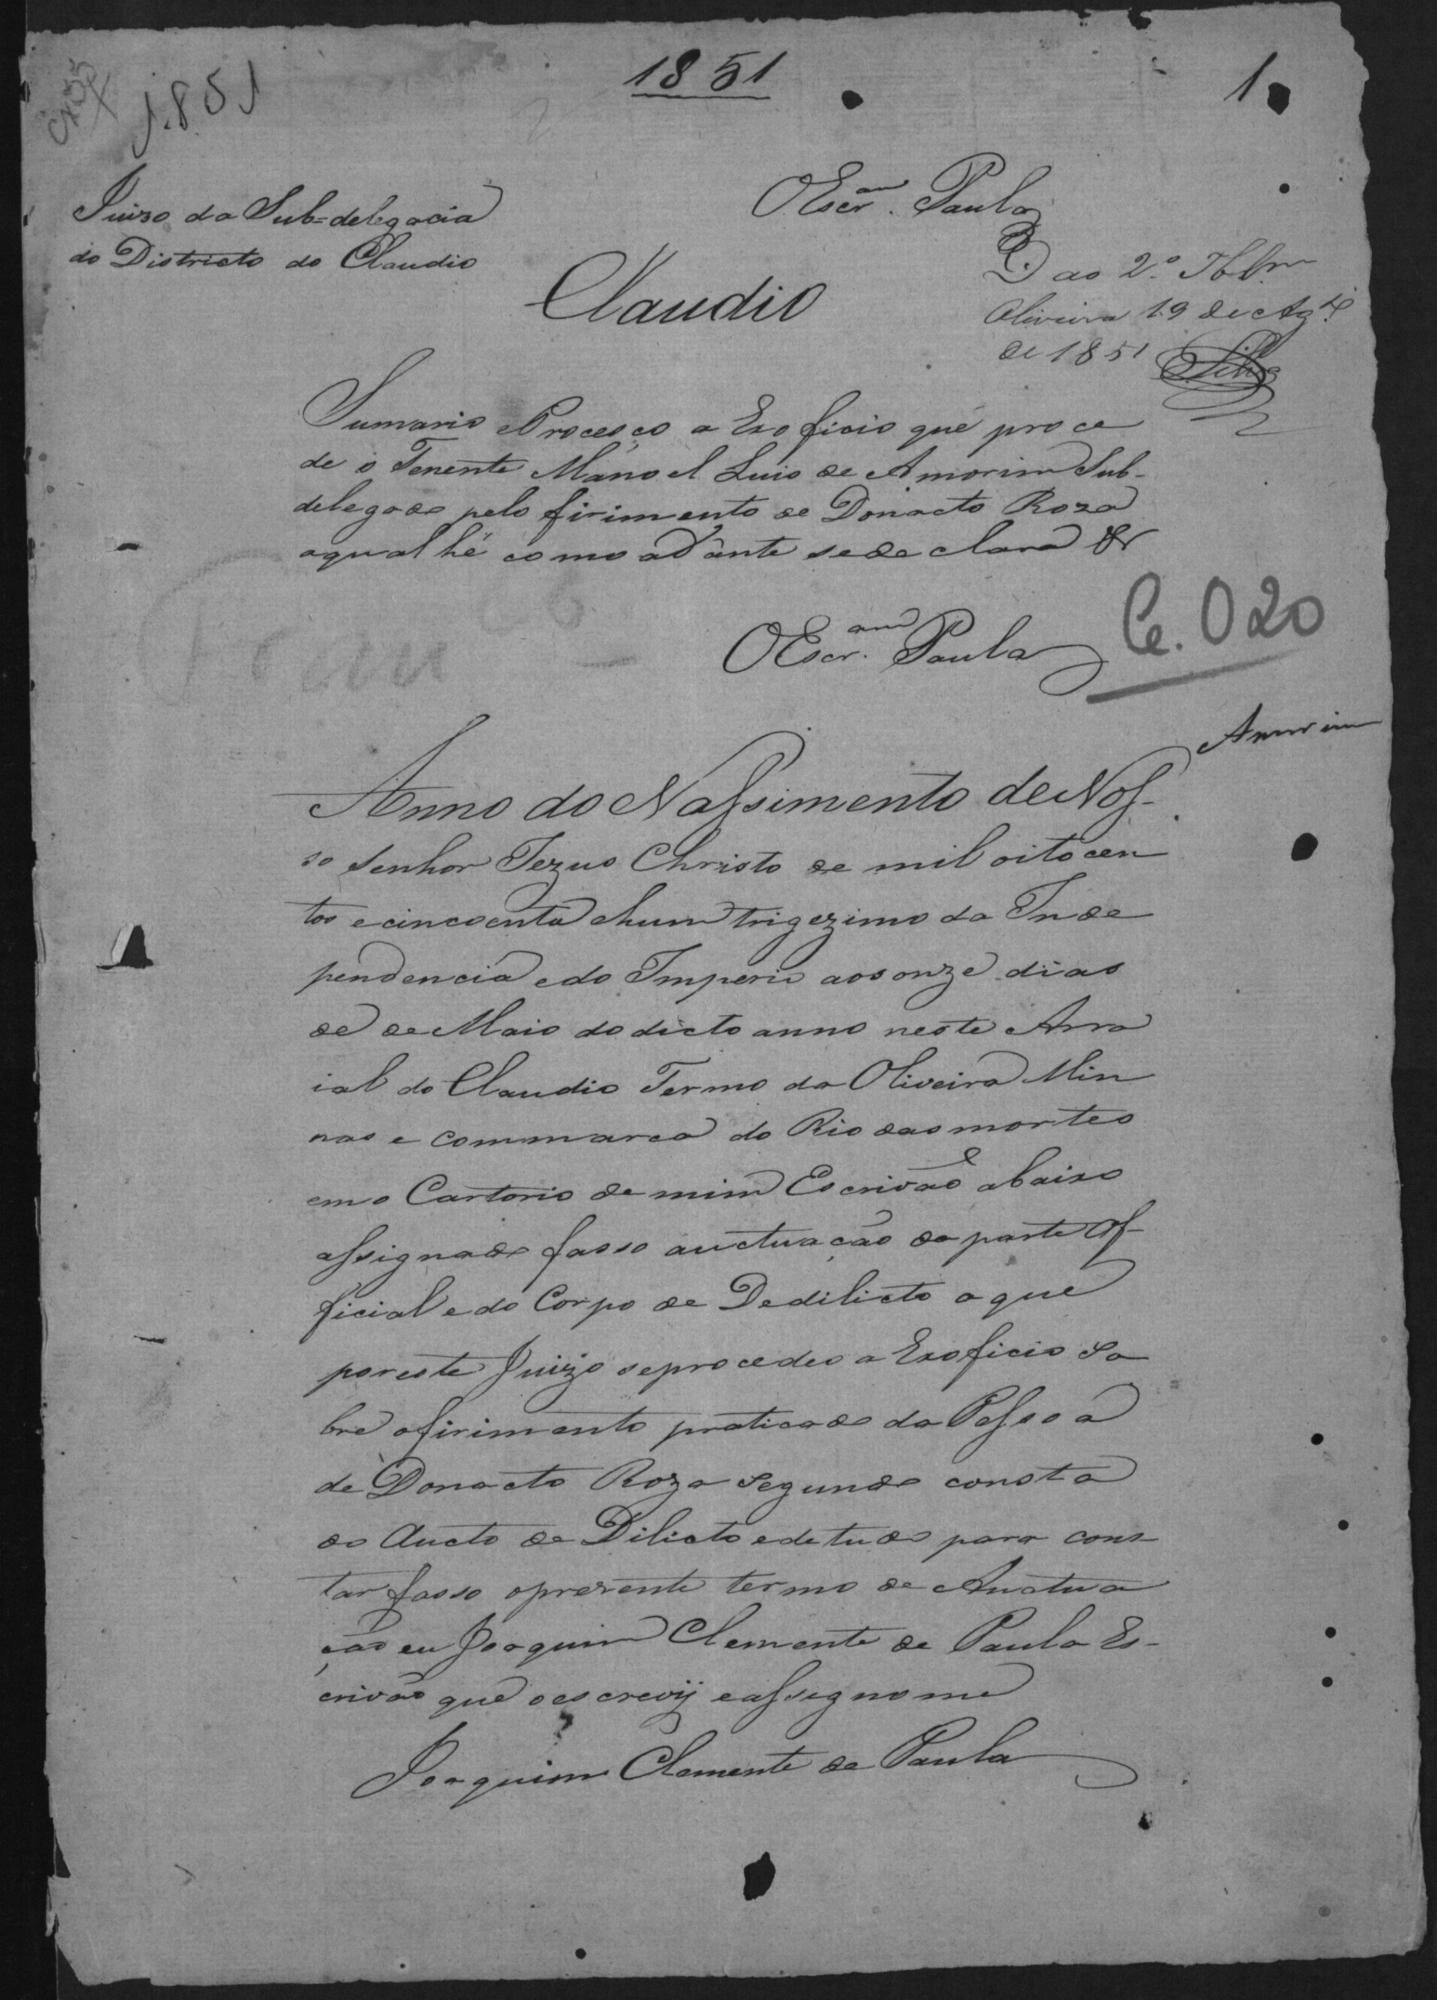 1851
1
1851
Juizo da Sub=delegacia
do Districto do Claudio
OEscr.am Paula
D. ao 2.º Tbb.am
Oliveira 19 de Ag.to
de 1851 Silva
Claudio
Sumario Processo a Exoficio que proce
de o Tenente Manoel Luis de Amorim Sub-
delegado pelo firimento de Donacto Roza
aqual hé como adiante sedeclara &
OEscr.am Paula
Ce. 020
Amorim
Anno do Nassimento de Nos-
so Senhor Jezus Christo de mil oitocen
tos e cincoenta ehum trigezimo da Inde
pendencia edo Imperio aos onze dias
de de Maio dodicto anno neste Arra
ial do Claudio Termo da Oliveira Min
nas e commarca do Rio das mortes
emo Cartorio de mim Escrivão abaixo
assignado fasso auctuação da parte Of-
ficial e do Corpo de Dedilicto a que
por este Juizo seprocedeo a Exoficio so
bre ofirimento praticado da Pessoa
de Donacto Roza segundo consta
do Aucto de Dilicto edetudo para cons-
tar fasso oprezente termo de Auctua
ção eu Joaquim Clemente de Paula Es-
crivão que o escrevij eassignome
Joaquim Clemente de Paula